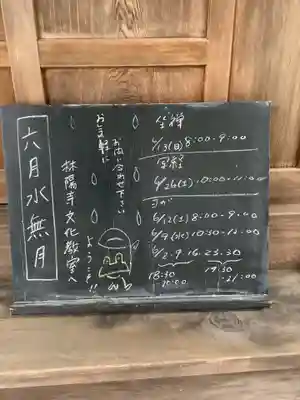 六月水無月
林陽寺文化教室へ
ようこそ!!
お問い合わせ下さい
お気軽に
坐禅
6/13(日) 8:00-9:00
写経
6/26(土) 10:00-11:00
ヨガ
6/12(土) 8:00-9:00
10:30-12:00
6/2.9.16.23.30
18:30
19:30
-21:00